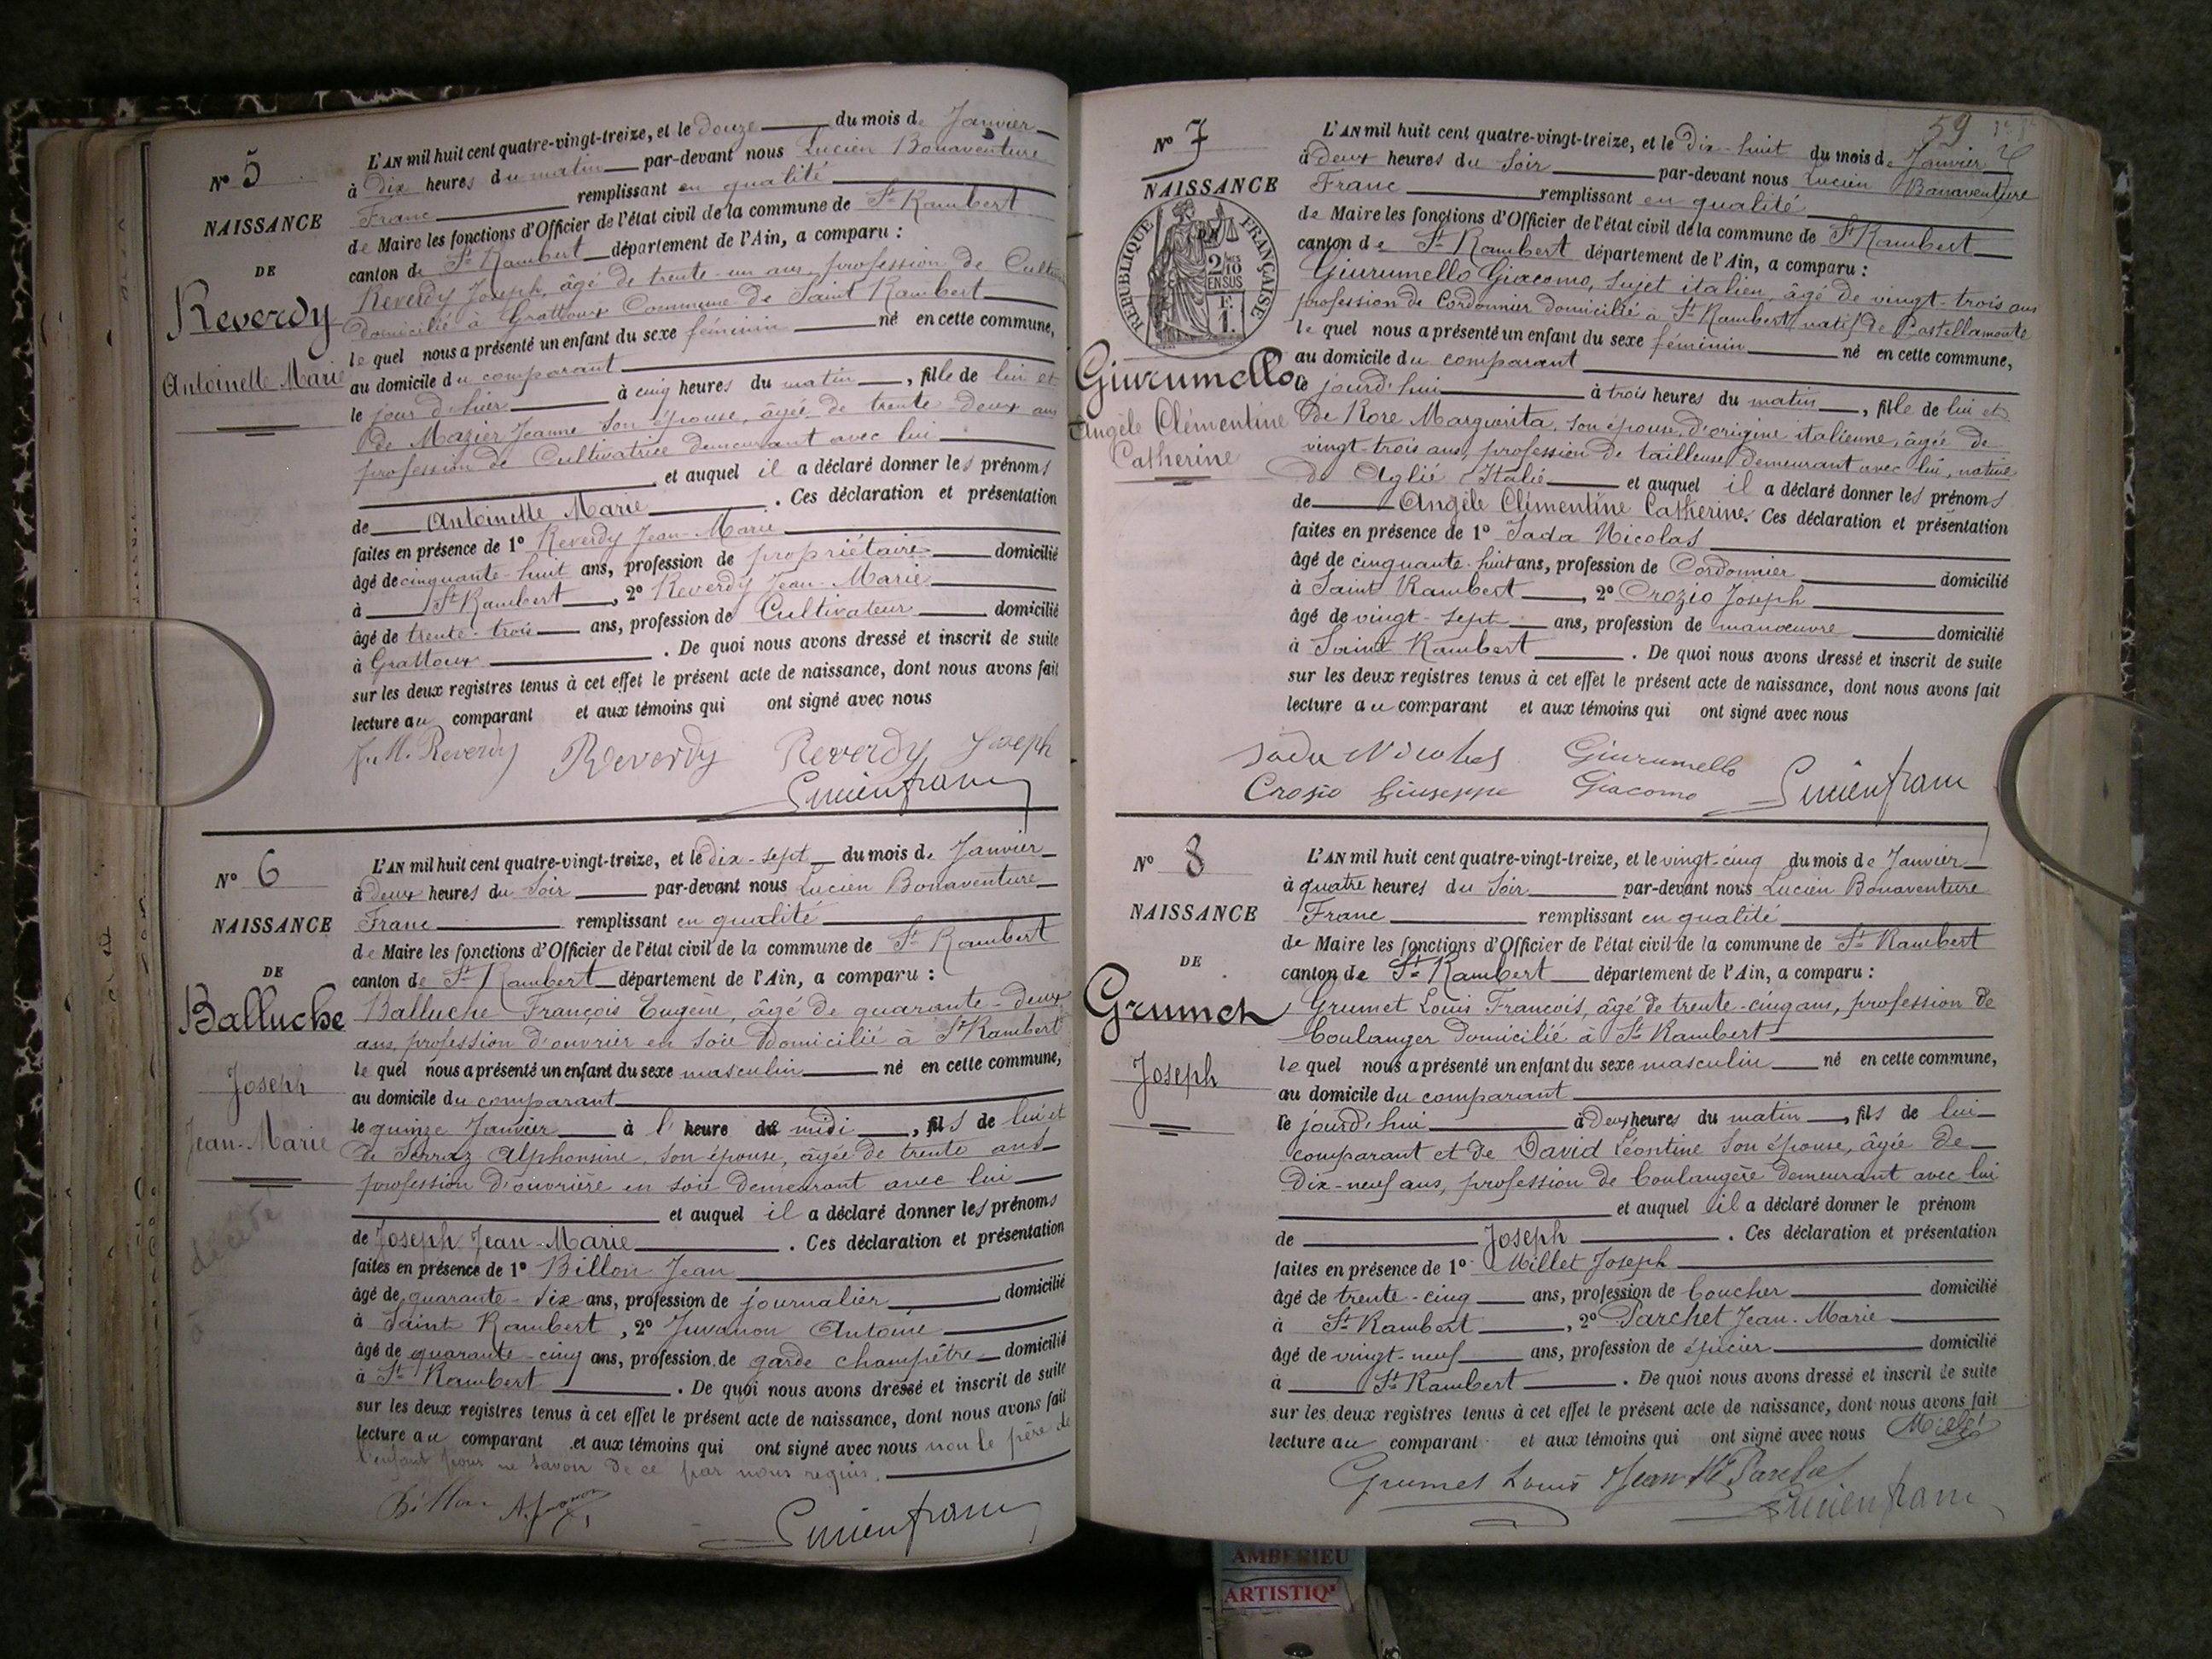 N° 5
NAISSANCE
DE
Reverdy
Antoinette Marie
L'AN mil huit cent quatre-vingt-treize, et le douze du mois de Janvier
à dix heures du matin par-devant nous Lucien Bonaventure
Franc remplissant en qualité
de Maire les fonctions d'Officier de l'état civil de la commune de St Rambert
canton de St Rambert département de l'Ain, a comparu :
Reverdy Joseph, âgé de trente-un ans, profession de
domicilié à Grattoux Commune de Saint Rambert
le quel nous a présenté un enfant du sexe féminin né en cette commune,
au domicile du comparant
le jour d'hier à cinq heures du matin, fille de lui et
de Mazier Jeanne son épouse, âgée de trente-deux ans
profession de Cultivatrice demeurant avec lui
et auquel il a déclaré donner les prénoms
de Antoinette Marie. Ces déclaration et présentation
faites en présence de 1° Reverdy Jean-Marie
âgé de cinquante-huit ans, profession de propriétaire domicilié
à St Rambert, 2° Reverdy Jean-Marie
âgé de trente-trois ans, profession de Cultivateur domicilié
à Grattoux. De quoi nous avons dressé et inscrit de suite
sur les deux registres tenus à cet effet le présent acte de naissance, dont nous avons fait
lecture au comparant et aux témoins qui ont signé avec nous
J. M. Reverdy Reverdy Reverdy Joseph
Lucien franc
N° 6
NAISSANCE
DE
Balluche
Joseph
Jean-Marie
décédé
L'AN mil huit cent quatre-vingt-treize, et le dix-sept du mois de Janvier
à deux heures du soir par-devant nous Lucien Bonaventure
Franc remplissant en qualité
de Maire les fonctions d'Officier de l'état civil de la commune de St Rambert
canton de St Rambert département de l'Ain, a comparu :
Balluche François Eugène, âgé de quarante-deux
ans, profession d'ouvrier en soie domicilié à St Rambert
le quel nous a présenté un enfant du sexe masculin né en cette commune,
au domicile du comparant
le quinze Janvier à l'heure de midi, fils de lui et
de Serraz Alphonsine, son épouse, âgée de trente ans
profession d'ouvrière en soie demeurant avec lui
et auquel il a déclaré donner les prénoms
de Joseph Jean-Marie. Ces déclaration et présentation
faites en présence de 1° Billon Jean
âgé de quarante-six ans, profession de journalier domicilié
à Saint Rambert, 2° Juvanon Antoine
âgé de quarante-cinq ans, profession de garde champêtre domicilié
à St Rambert. De quoi nous avons dressé et inscrit de suite
sur les deux registres tenus à cet effet le présent acte de naissance, dont nous avons fait
lecture au comparant et aux témoins qui ont signé avec nous non le père de
l'enfant pour ne savoir de ce par nous requis.
Billon
Lucien franc
59
N° 7
NAISSANCE
RÉPUBLIQUE FRANÇAISE
2/10 EN SUS
Giurumello
Angèle Clémentine
Catherine
L'AN mil huit cent quatre-vingt-treize, et le dix-huit du mois de Janvier
à deux heures du soir par-devant nous Lucien Bonaventure
Franc remplissant en qualité
de Maire les fonctions d'Officier de l'état civil de la commune de St Rambert
canton de St Rambert département de l'Ain, a comparu :
Giurumello Giacomo, sujet italien, âgé de vingt-trois ans
profession de Cordonnier domicilié à St Rambert, natif de Castellamonte
le quel nous a présenté un enfant du sexe féminin né en cette commune,
au domicile du comparant
le jourd'hui à trois heures du matin, fille de lui et
de Rore Marguerita, son épouse, d'origine italienne, âgée de
vingt-trois ans, profession de tailleuse, demeurant avec lui, native
de Aglié Italie et auquel il a déclaré donner les prénoms
de Angèle Clémentine Catherine. Ces déclaration et présentation
faites en présence de 1° Sada Nicolas
âgé de cinquante-huit ans, profession de Cordonnier domicilié
à Saint Rambert, 2° Crozio Joseph
âgé de vingt-sept ans, profession de manœuvre domicilié
à Saint Rambert. De quoi nous avons dressé et inscrit de suite
sur les deux registres tenus à cet effet le présent acte de naissance, dont nous avons fait
lecture au comparant et aux témoins qui ont signé avec nous
Sada Nicolas Giurumello
Crosio Giuseppe Giacomo Lucien franc
N° 8
NAISSANCE
DE
Grumet
Joseph
L'AN mil huit cent quatre-vingt-treize, et le vingt-cinq du mois de Janvier
à quatre heures du soir par-devant nous Lucien Bonaventure
Franc remplissant en qualité
de Maire les fonctions d'Officier de l'état civil de la commune de St Rambert
canton de St Rambert département de l'Ain, a comparu :
Grumet Louis François, âgé de trente-cinq ans, profession de
boulanger domicilié à St Rambert
le quel nous a présenté un enfant du sexe masculin né en cette commune,
au domicile du comparant
le jourd'hui à deux heures du matin, fils de lui
comparant et de David Léontine son épouse, âgée de
dix-neuf ans, profession de boulangère demeurant avec lui
et auquel il a déclaré donner le prénom
de Joseph. Ces déclaration et présentation
faites en présence de 1° Millet Joseph
âgé de trente-cinq ans, profession de boucher domicilié
à St Rambert, 2° Parchet Jean-Marie
âgé de vingt-neuf ans, profession de épicier domicilié
à St Rambert. De quoi nous avons dressé et inscrit de suite
sur les deux registres tenus à cet effet le présent acte de naissance, dont nous avons fait
lecture au comparant et aux témoins qui ont signé avec nous Millet
Grumet Louis Jean Me Parchet
Lucien franc
AMBERIEU
ARTISTIQ